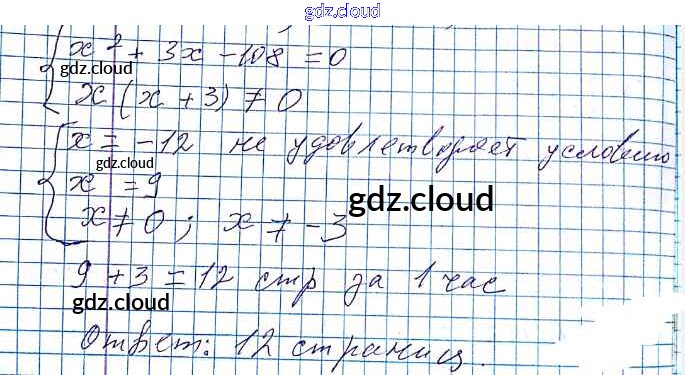 gdz.cloud
x² + 3x - 108 = 0
gdz.cloud
x(x + 3) ≠ 0
x = -12 не удовлетворяет условию
gdz.cloud
x = 9
gdz.cloud
x ≠ 0; x ≠ -3
9 + 3 = 12 стр за 1 час
gdz.cloud
Ответ: 12 страниц.